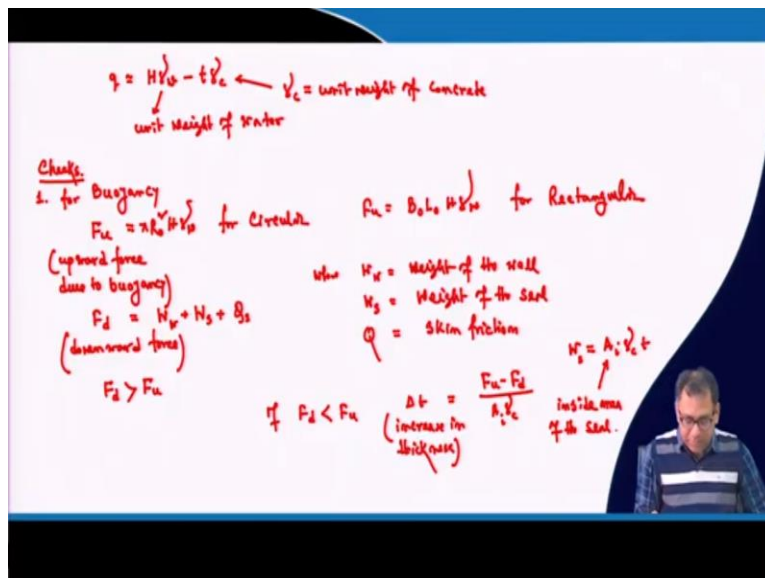 q = Hγw − tγc ← γc = unit weight of concrete
unit weight of water
Checks.
1. for Buoyancy
Fu = πR₀²Hγw for Circular
Fu = B₀L₀Hγw for Rectangular
(upward force
due to buoyancy)
Fd = Ww + Ws + Qs
(downward force)
Fd > Fu
where Ww = weight of the wall
Ws = weight of the seal
Q = skin friction
Ws = Ai γc t
inside area
of the seal.
If Fd < Fu Δt = (Fu − Fd) / (Ai γc)
(increase in
thickness)